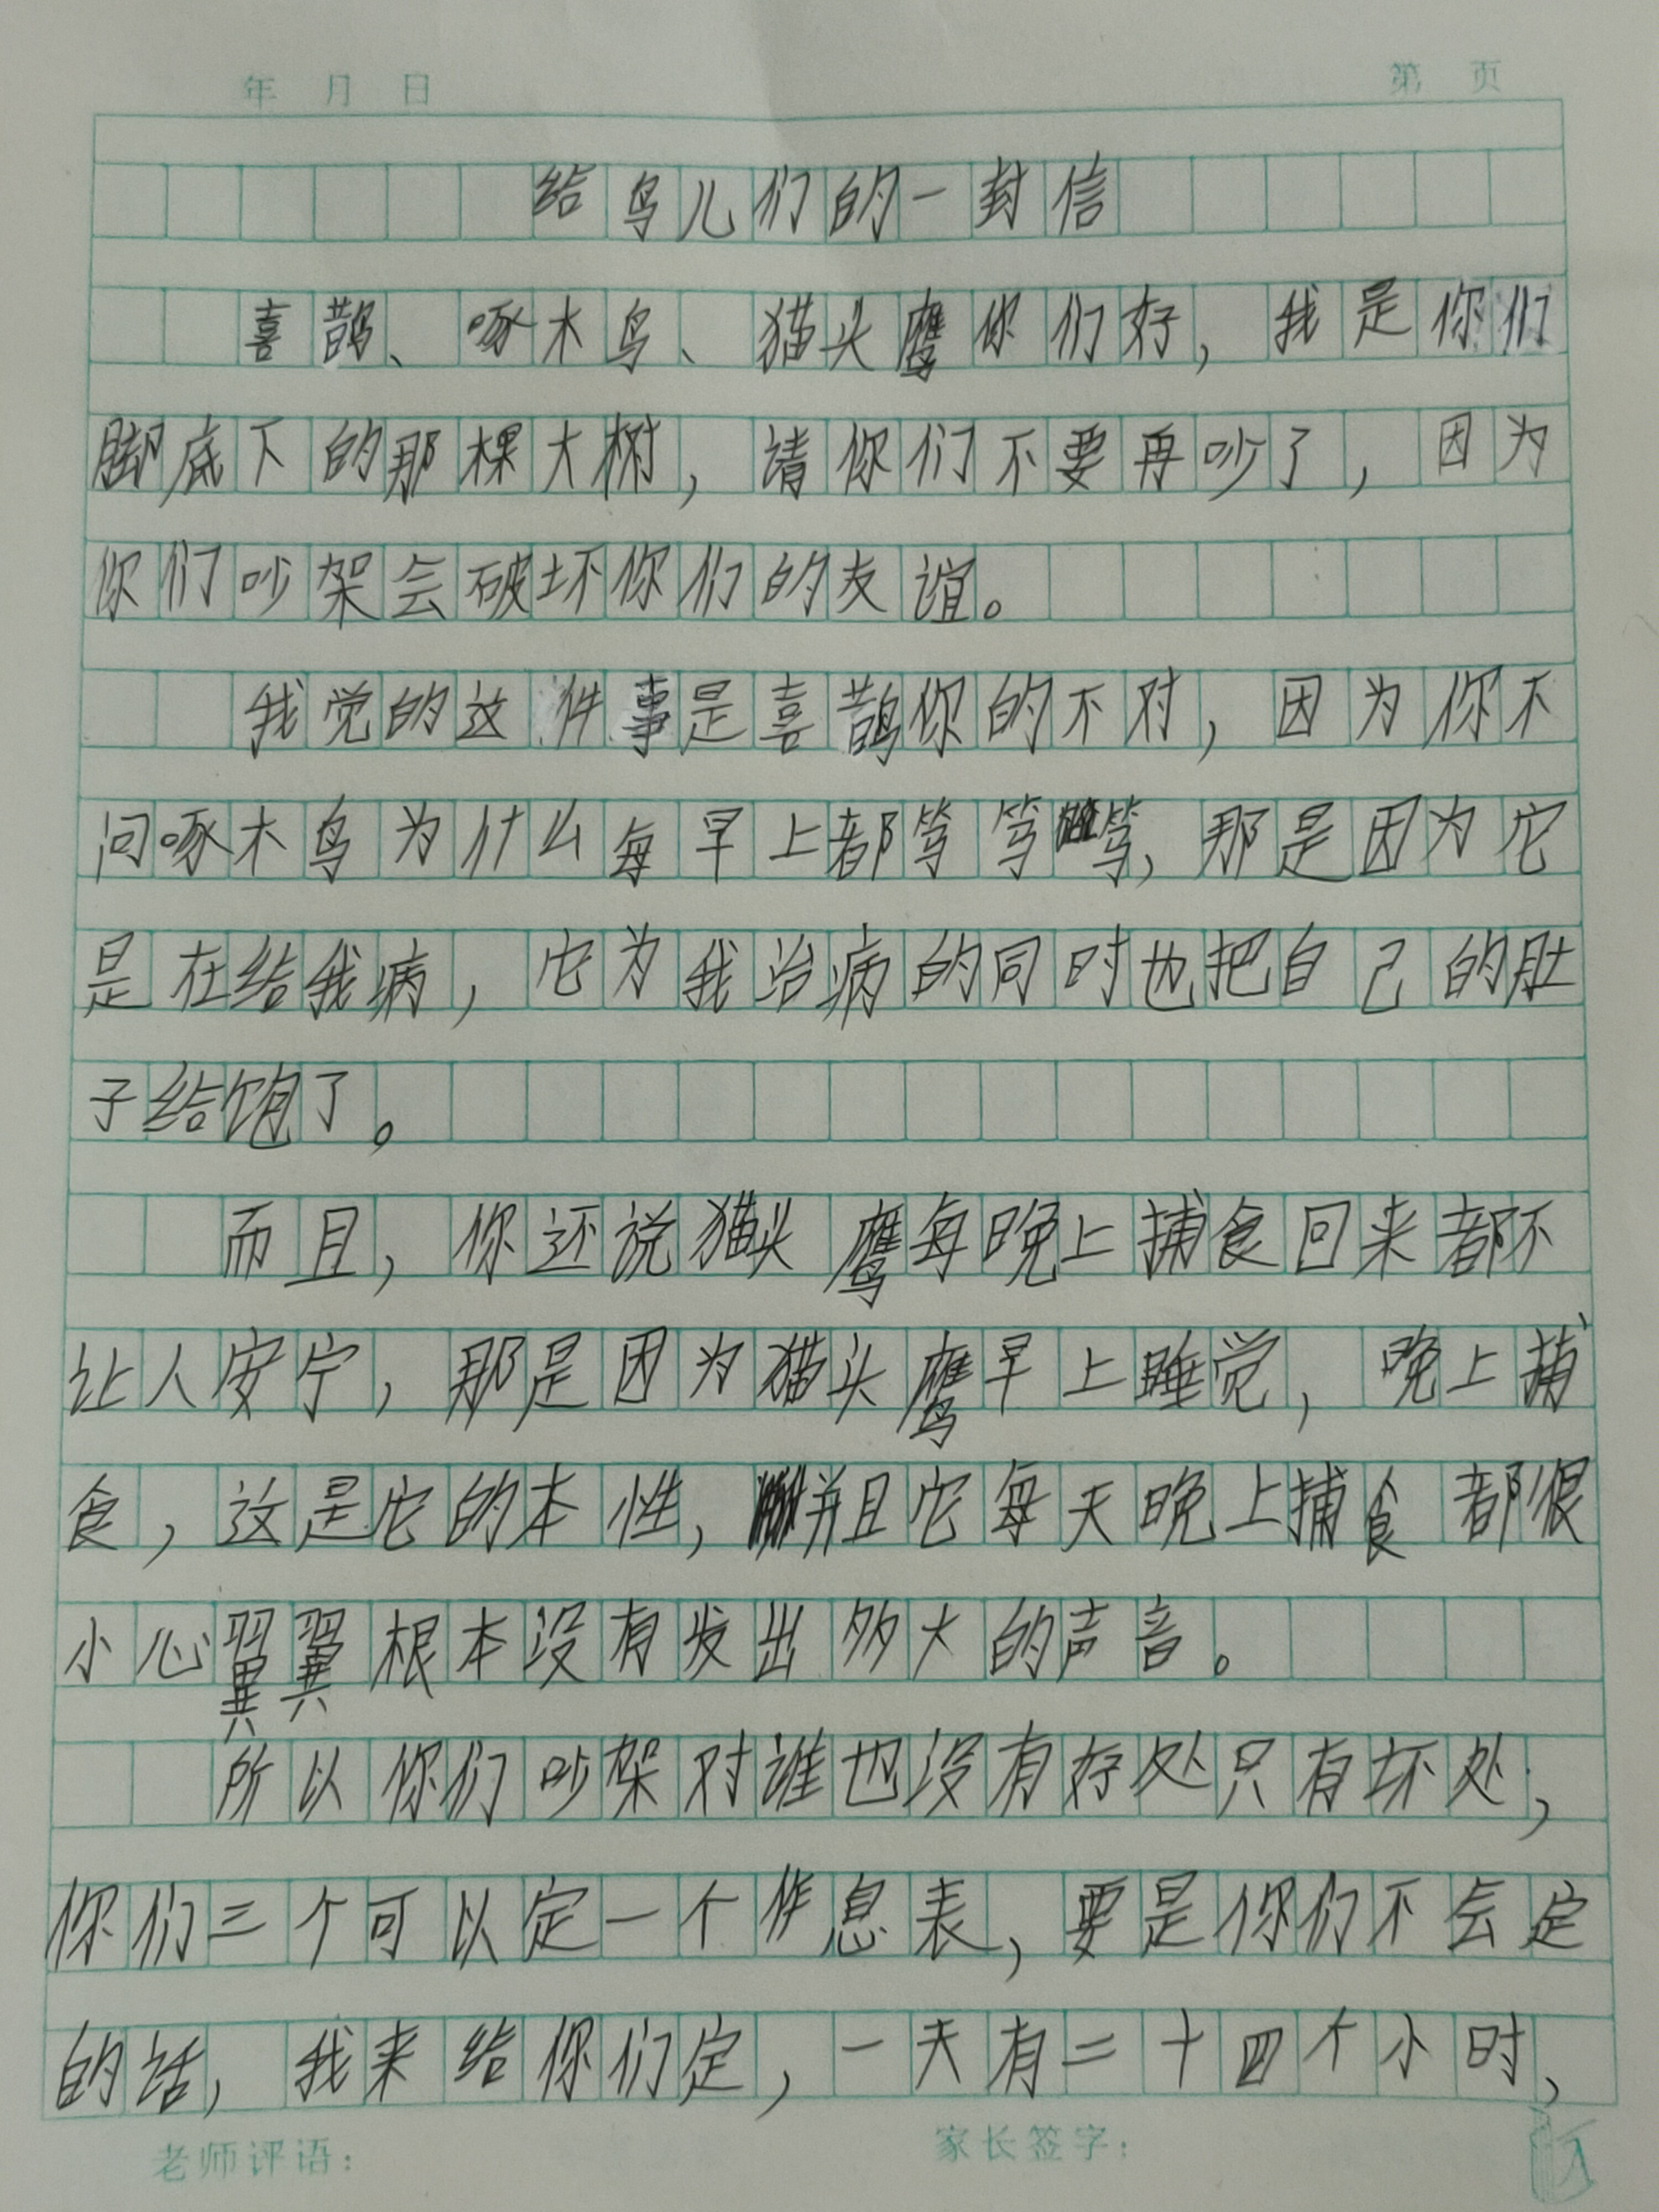 年 月 日 第 页
给鸟儿们的一封信
喜鹊、啄木鸟、猫头鹰你们好，我是你们
脚底下的那棵大树，请你们不要再吵了，因为
你们吵架会破坏你们的友谊。
我觉的这件事是喜鹊你的不对，因为你不
问啄木鸟为什么每早上都笃笃笃，那是因为它
是在给我病，它为我治病的同时也把自己的肚
子给饱了。
而且，你还说猫头鹰每晚上捕食回来都不
让人安宁，那是因为猫头鹰早上睡觉，晚上捕
食，这是它的本性，并且它每天晚上捕食都很
小心翼翼根本没有发出多大的声音。
所以你们吵架对谁也没有好处只有坏处，
你们三个可以定一个作息表，要是你们不会定
的话，我来给你们定，一天有二十四个小时，
老师评语： 家长签字：